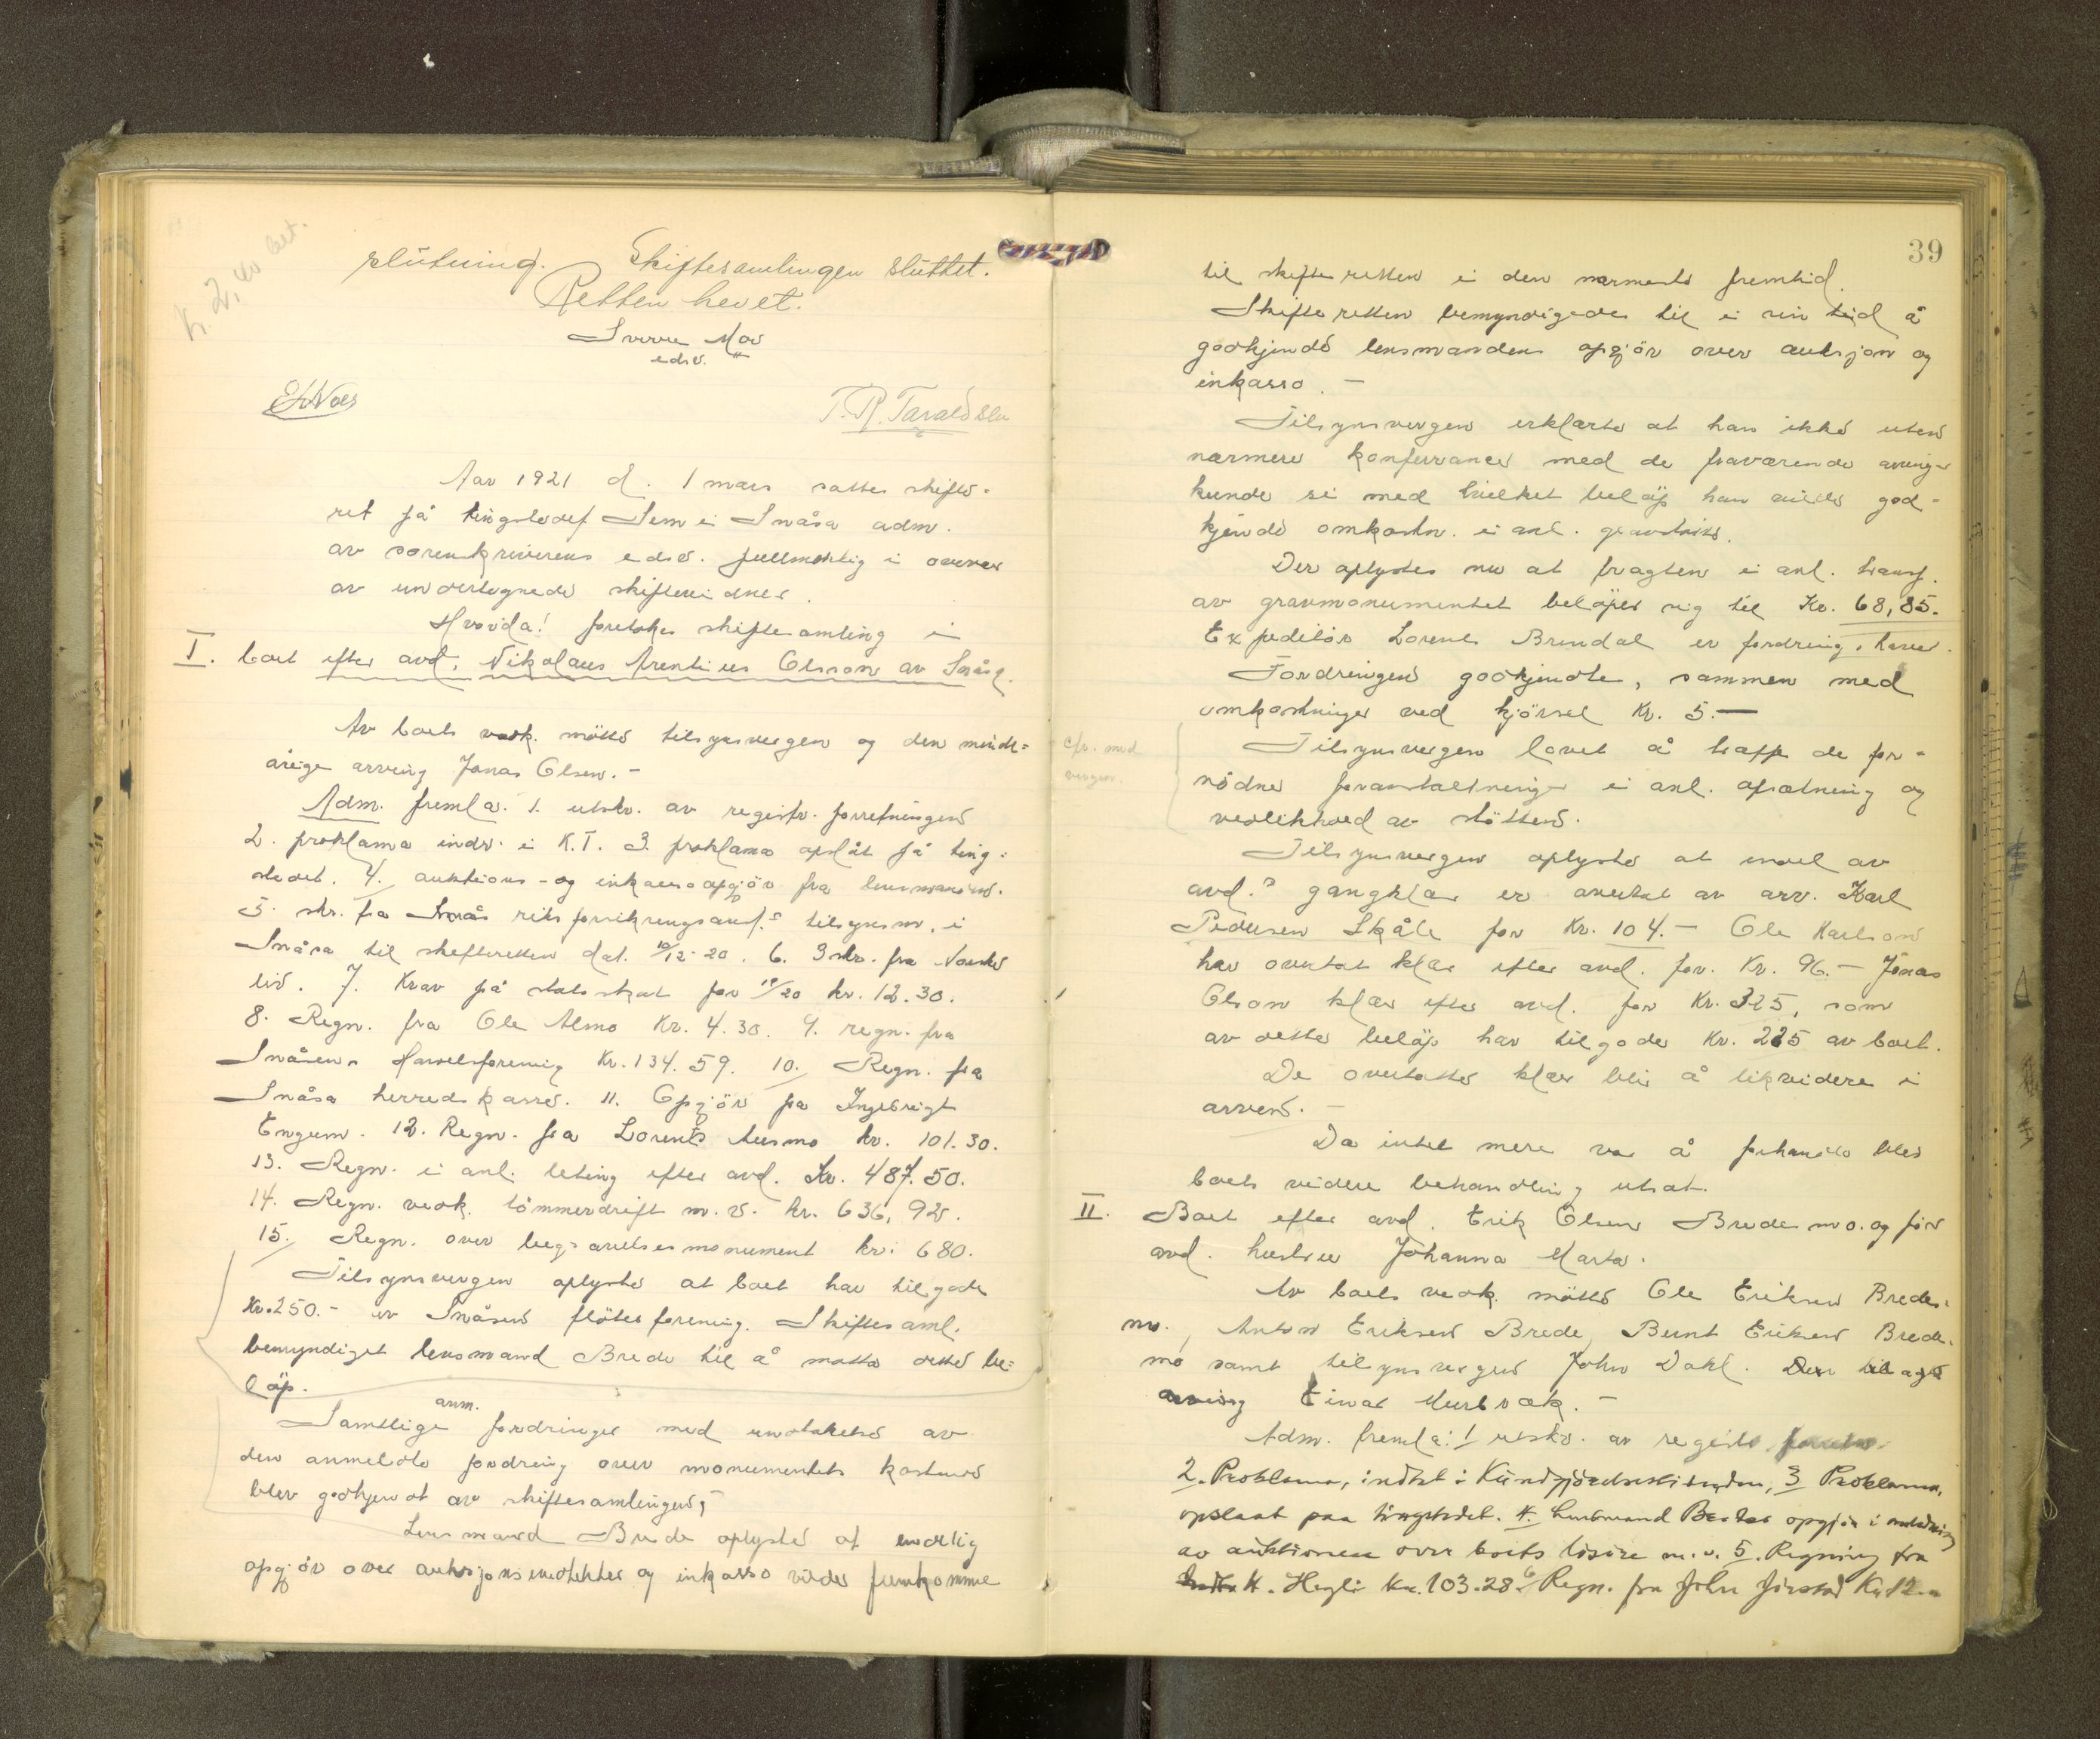 Kr. 2,40 bet.
slutning. Skiftesamlingen sluttet.
Retten hevet.
Sverre Mov
edsv.
T. R. Taraldsen
Aar 1921 d. 1 mars sattes skifte-
ret på tingstedet Sem i Snåsa adm.
av sorenskriverens edsv. fullmektig i overvær
av undertegnede skiftevidner.
Hvorda! foretokes skiftesamling i
I. boet efter avd. Nikolaus Arentius Olsson av Snåsa.
Av boets vedk. møtte tilsynsvergen og den minde-
årige arving Jonas Olsen. -
Adm. fremla. 1. utskr. av registr. forretningen
2. proklama indr. i K.T. 3. proklama opslåt på ting-
stedet. 4. auktions- og inkassoopgjör fra lensmanden.
5. skr. fra riksforsikringsanst.s tilsynsm. i
Snåsa til skifteretten dat. 10/12-20. 6. 3 skr. fra Norske
liv. 7. Krav på statsskat for 19/20 kr. 12.30.
8. Regn. fra Ole Almo Kr. 4.30. 9. regn. fra
Snåsens Handelsforening Kr. 134.59. 10. Regn. fra
Snåsa herredskasse. 11. Opgjör fra Ingebrigt
Engum. 12. Regn. fra Lorents Ausmo kr. 101.30.
13. Regn. i anl. leting efter avd. Kr. 487.50.
14. Regn. vedk. tömmerdrift m.v. kr. 636,92.
15. Regn. over begravelsesmonument kr. 680.
Tilsynsvergen oplyste at boet har tilgode
Kr. 250.- av Snåsens flöterforening. Skiftesaml.
bemyndiget lensmand Brede til å motta dette be-
löp.
anm.
Samtlige fordringer med undtakelse av
den anmeldte fordring over monumentets kostende
blev godkjendt av skiftesamlingen,
Lensmand Brede oplyste at endelig
opgjör over auksjonsinntekter og inkasso vilde fremkomme
39
til skifteretten i den nærmeste fremtid.
Skifteretten bemyndigedes til i sin tid å
godkjende lensmandens opgjör over auksjon og
inkasso. -
Tilsynsvergen erklærte at han ikke uten
nærmere konferrance med de fraværende arvinger
kunde si med hvilket belöp han vilde god-
kjende omkostn. i anl. gravstötte.
Der oplystes nu at fragten i anl. transp.
av gravmonumentet belöper sig til Kr. 68,85.
Expeditör Lorents Brindal er fordringshaver.
Fordringen godkjendte, sammen med
omkostninger ved kjörsel Kr. 5.-
cfr. med
vergen.
Tilsynsvergen lovet å træffe de for-
nödne foranstaltninger i anl. opsætning og
vedlikehold av stötten.
Tilsynsvergen oplyste at endel av
avd.s gangklær er overtat av arv. Karl
Pedersen Skåle for Kr. 104.- Ole Karlson
har overtat klær efter avd. for Kr. 96.- Jonas
Olsson klær efter avd. for Kr. 325, som
av dette belöp har tilgode Kr. 225 av boet.
De overtatte klær blir å likvidere i
arven. -
Da intet mere var å forhandle blev
boets videre behandling utsat.
II. Boet efter avd. Erik Olsen Bredesmo. og för
avd. hustru Johanna Marta.
Av boets vedk. mötte Ole Eriksen Bredes-
mo, Anton Eriksen Brede, Bernt Eriksen Brede-
mo samt tilsynsvergen John Dahl.
arving Einar
Adm. fremla: 1 utskr. av registr.
2. Proklama, indtat i Kundgjörelsestidenden, 3 Proklama,
opslaat paa tingstedet. 4. Lensmand Bredes opgjör i anledning
av auktionen over boets lösöre m.v. 5. Regning fra
K. Hegli Kr. 103.28. 6 Regn. fra John Jörstad Kr 12.-